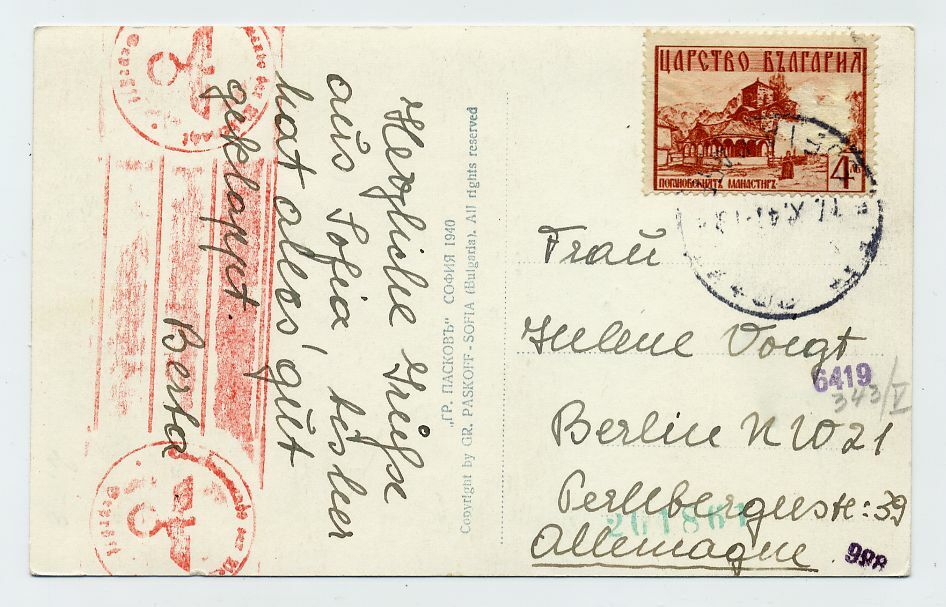 Herzliche Grüße
aus Sofia, bisher
hat alles gut
geklappt.
Berta
„ГР. ПАСКОВЪ" СОФИЯ 1940
Copyright by GR. PASKOFF - SOFIA (Bulgaria). All rights reserved
ЦАРСТВО БЪЛГАРИЯ
ПОГАНОВСКИЯТЪ МАНАСТИРЪ
4
Frau
Helene Voigt
6419
343/V
Berlin NW 21
Perlebergerstr: 39
Allemagne
998